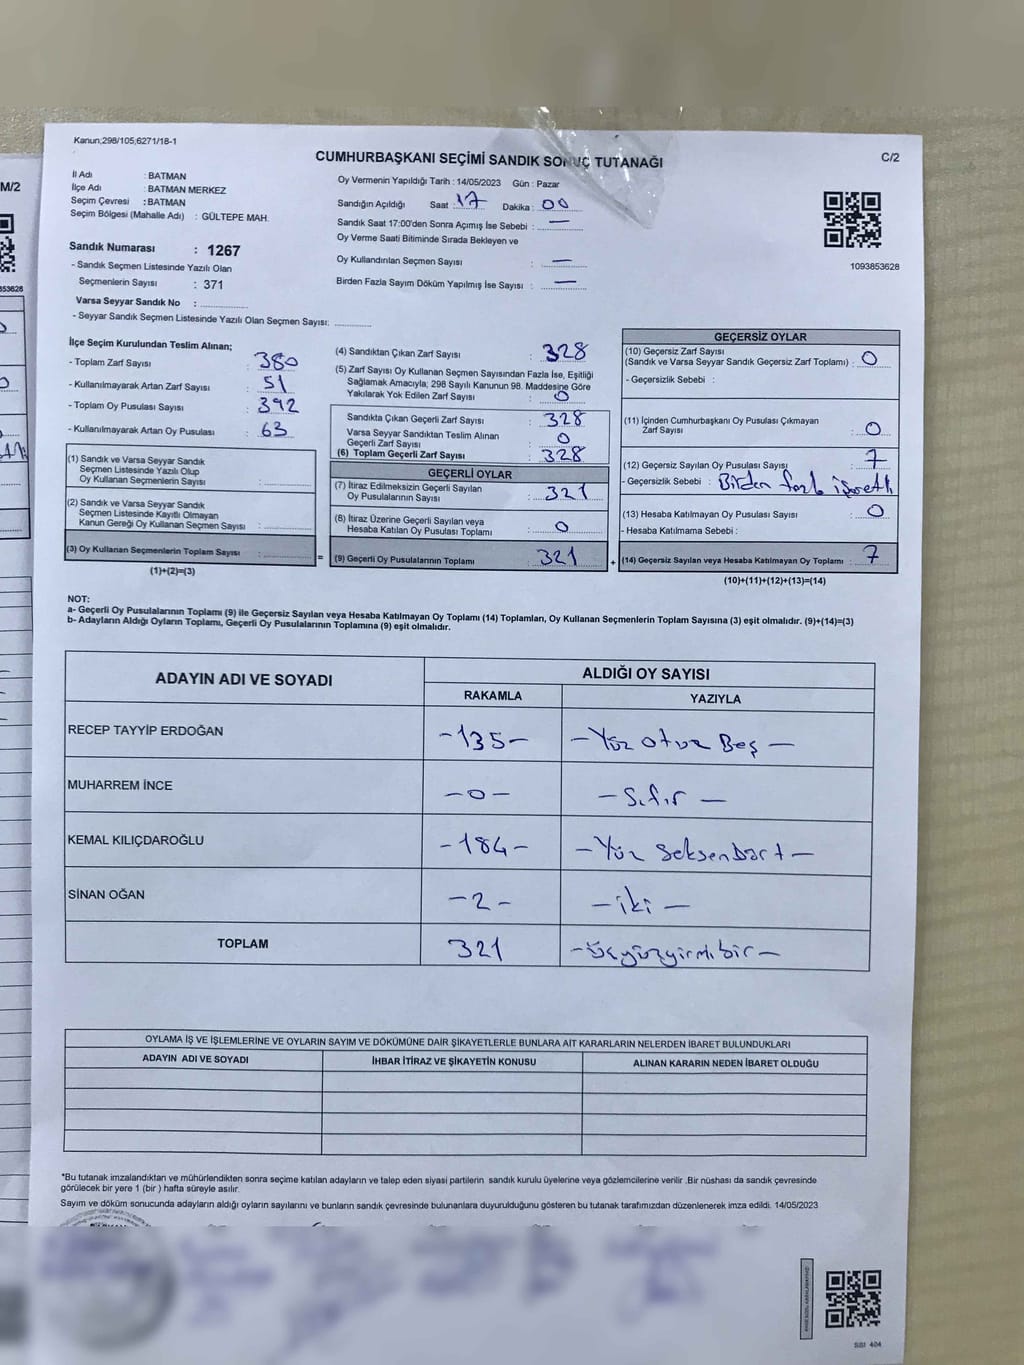 Kanun;298/105;6271/18-1
CUMHURBAŞKANI SEÇİMİ SANDIK SONUÇ TUTANAĞI
C/2
M/2
İl Adı : BATMAN
İlçe Adı : BATMAN MERKEZ
Seçim Çevresi : BATMAN
Seçim Bölgesi (Mahalle Adı) : GÜLTEPE MAH.
Sandık Numarası : 1267
- Sandık Seçmen Listesinde Yazılı Olan
Seçmenlerin Sayısı : 371
Varsa Seyyar Sandık No :
- Seyyar Sandık Seçmen Listesinde Yazılı Olan Seçmen Sayısı:
Oy Vermenin Yapıldığı Tarih : 14/05/2023 Gün : Pazar
Sandığın Açıldığı Saat : 17 Dakika : 00
Sandık Saat 17:00'den Sonra Açımış İse Sebebi : —
Oy Verme Saati Bitiminde Sırada Bekleyen ve
Oy Kullandırılan Seçmen Sayısı : —
Birden Fazla Sayım Döküm Yapılmış İse Sayısı : —
1093853628
853628
İlçe Seçim Kurulundan Teslim Alınan;
- Toplam Zarf Sayısı : 380
- Kullanılmayarak Artan Zarf Sayısı : 51
- Toplam Oy Pusulası Sayısı : 392
- Kullanılmayarak Artan Oy Pusulası : 63
(1) Sandık ve Varsa Seyyar Sandık
Seçmen Listesinde Yazılı Olup
Oy Kullanan Seçmenlerin Sayısı :
(2) Sandık ve Varsa Seyyar Sandık
Seçmen Listesinde Kayıtlı Olmayan
Kanun Gereği Oy Kullanan Seçmen Sayısı :
(3) Oy Kullanan Seçmenlerin Toplam Sayısı :
(1)+(2)=(3)
=
(4) Sandıktan Çıkan Zarf Sayısı : 328
(5) Zarf Sayısı Oy Kullanan Seçmen Sayısından Fazla İse, Eşitliği
Sağlamak Amacıyla; 298 Sayılı Kanunun 98. Maddesine Göre
Yakılarak Yok Edilen Zarf Sayısı : 0
Sandıkta Çıkan Geçerli Zarf Sayısı : 328
Varsa Seyyar Sandıktan Teslim Alınan
Geçerli Zarf Sayısı : 0
(6) Toplam Geçerli Zarf Sayısı : 328
GEÇERLİ OYLAR
(7) İtiraz Edilmeksizin Geçerli Sayılan
Oy Pusulalarının Sayısı : 321
(8) İtiraz Üzerine Geçerli Sayılan veya
Hesaba Katılan Oy Pusulası Toplamı : 0
(9) Geçerli Oy Pusulalarının Toplamı : 321
+
GEÇERSİZ OYLAR
(10) Geçersiz Zarf Sayısı
(Sandık ve Varsa Seyyar Sandık Geçersiz Zarf Toplamı) : 0
- Geçersizlik Sebebi :
(11) İçinden Cumhurbaşkanı Oy Pusulası Çıkmayan
Zarf Sayısı : 0
(12) Geçersiz Sayılan Oy Pusulası Sayısı : 7
- Geçersizlik Sebebi : Birden fazla işaretli
(13) Hesaba Katılmayan Oy Pusulası Sayısı : 0
- Hesaba Katılmama Sebebi :
(14) Geçersiz Sayılan veya Hesaba Katılmayan Oy Toplamı : 7
(10)+(11)+(12)+(13)=(14)
NOT:
a- Geçerli Oy Pusulalarının Toplamı (9) ile Geçersiz Sayılan veya Hesaba Katılmayan Oy Toplamı (14) Toplamları, Oy Kullanan Seçmenlerin Toplam Sayısına (3) eşit olmalıdır. (9)+(14)=(3)
b- Adayların Aldığı Oyların Toplamı, Geçerli Oy Pusulalarının Toplamına (9) eşit olmalıdır.
ADAYIN ADI VE SOYADI
ALDIĞI OY SAYISI
RAKAMLA YAZIYLA
RECEP TAYYİP ERDOĞAN -135- -Yüz otuz Beş-
MUHARREM İNCE -0- -Sıfır-
KEMAL KILIÇDAROĞLU -184- -Yüz Seksendört-
SİNAN OĞAN -2- -iki-
TOPLAM 321 -Üçyüzyirmibir-
OYLAMA İŞ VE İŞLEMLERİNE VE OYLARIN SAYIM VE DÖKÜMÜNE DAİR ŞİKAYETLERLE BUNLARA AİT KARARLARIN NELERDEN İBARET BULUNDUKLARI
ADAYIN ADI VE SOYADI İHBAR İTİRAZ VE ŞİKAYETİN KONUSU ALINAN KARARIN NEDEN İBARET OLDUĞU
*Bu tutanak imzalandıktan ve mühürlendikten sonra seçime katılan adayların ve talep eden siyasi partilerin sandık kurulu üyelerine veya gözlemcilerine verilir .Bir nüshası da sandık çevresinde
görülecek bir yere 1 (bir ) hafta süreyle asılır.
Sayım ve döküm sonucunda adayların aldığı oyların sayılarını ve bunların sandık çevresinde bulunanlara duyurulduğunu gösteren bu tutanak tarafımızdan düzenlenerek imza edildi. 14/05/2023
SSI 404